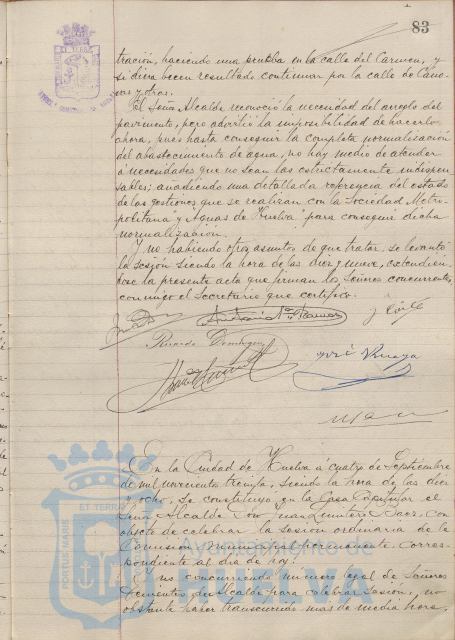 83
tración, haciendo una prueba en la calle del Carmen, y
si diera buen resultado continuar por la calle de Cáno-
vas y otras.
El Señor Alcalde reconoció la necesidad del arreglo del
pavimento, pero advirtió la imposibilidad de hacerlo
ahora, pues hasta conseguir la completa normalización
del abastecimiento de agua, no hay medio de atender
á necesidades que no sean las estrictamente indispen-
sables; anadiendo una detallada referencia del estado
de las gestiones que se realizan con la Sociedad Metro-
politana y Aguas de Huelva para conseguir dicha
normalización.
Y no habiendo otros asuntos de que tratar se levantó
la sesión siendo la hora de las diez y nueve, extendien-
dose la presente acta que firman los Señores concurrentes,
conmigo el Secretario que certifico.
Ricardo Dominguez
José
En la Ciudad de Huelva á cuatro de Septiembre
de mil novecientos treinta, siendo la hora de las diez
y ocho, se constituyó en la Casa Capitular el
Señor Alcalde Don Juan Quintero Baez, con
objeto de celebrar la sesión ordinaria de la
Comisión municipal permanente corres-
pondiente al día de hoy.
Y no concurriendo número legal de Señores
Tenientes de Alcalde para celebrar sesión, no
obstante haber transcurrido mas de media hora,
PORTUS MARIS
ET TERRE
Ayuntamiento de
HUELVA